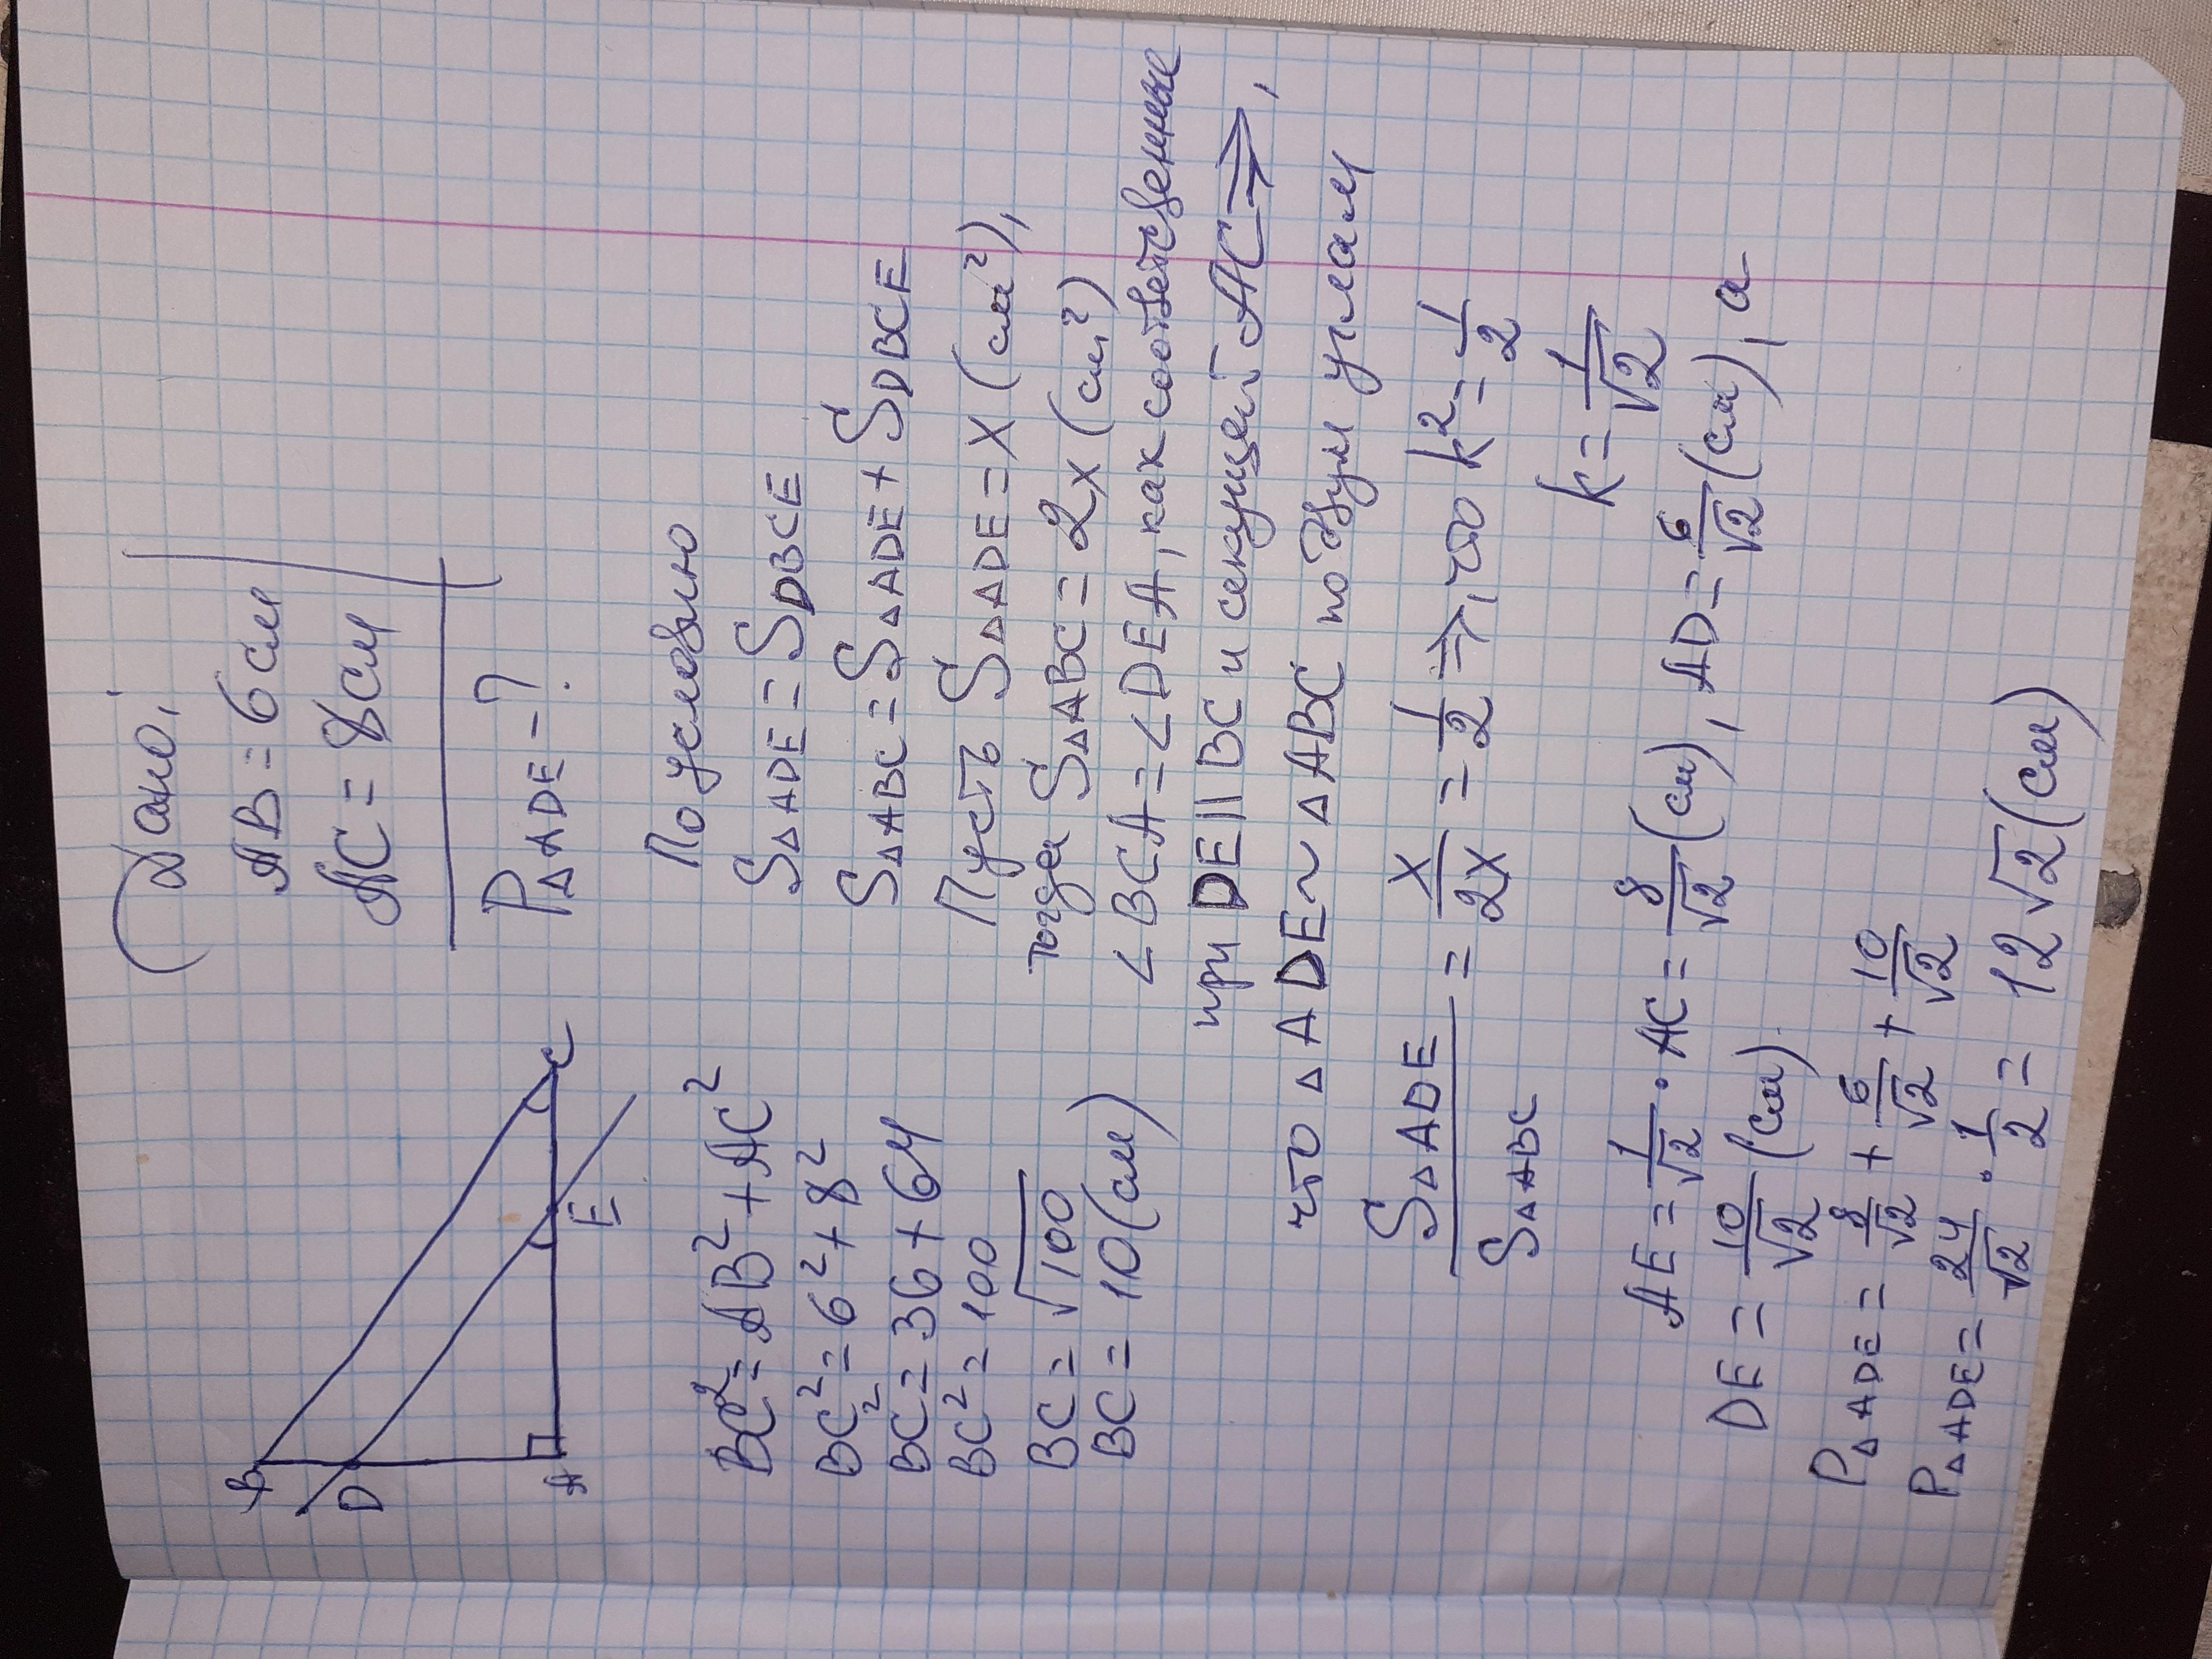 B
D
A
E
C
Дано:
AB = 6 см
AC = 8 см
P△ADE - ?
BC² = AB² + AC²
BC² = 6² + 8²
BC² = 36 + 64
BC² = 100
BC = √100
BC = 10 (см)
По условию
S△ADE = SDBCE
S△ABC = S△ADE + SDBCE
Пусть S△ADE = x (см²),
тогда S△ABC = 2x (см²)
∠BCA = ∠DEA, как соответсвенные
при DE || BC и секущей AC ⇒,
что △ADE ~ △ABC по двум углам
S△ADE / S△ABC = x/2x = 1/2 ⇒, что k² = 1/2
k = 1/√2
AE = 1/√2 · AC = 8/√2 (см), AD = 6/√2 (см), а
DE = 10/√2 (см).
P△ADE = 8/√2 + 6/√2 + 10/√2
P△ADE = 24/√2 · 1/2 = 12√2 (см)